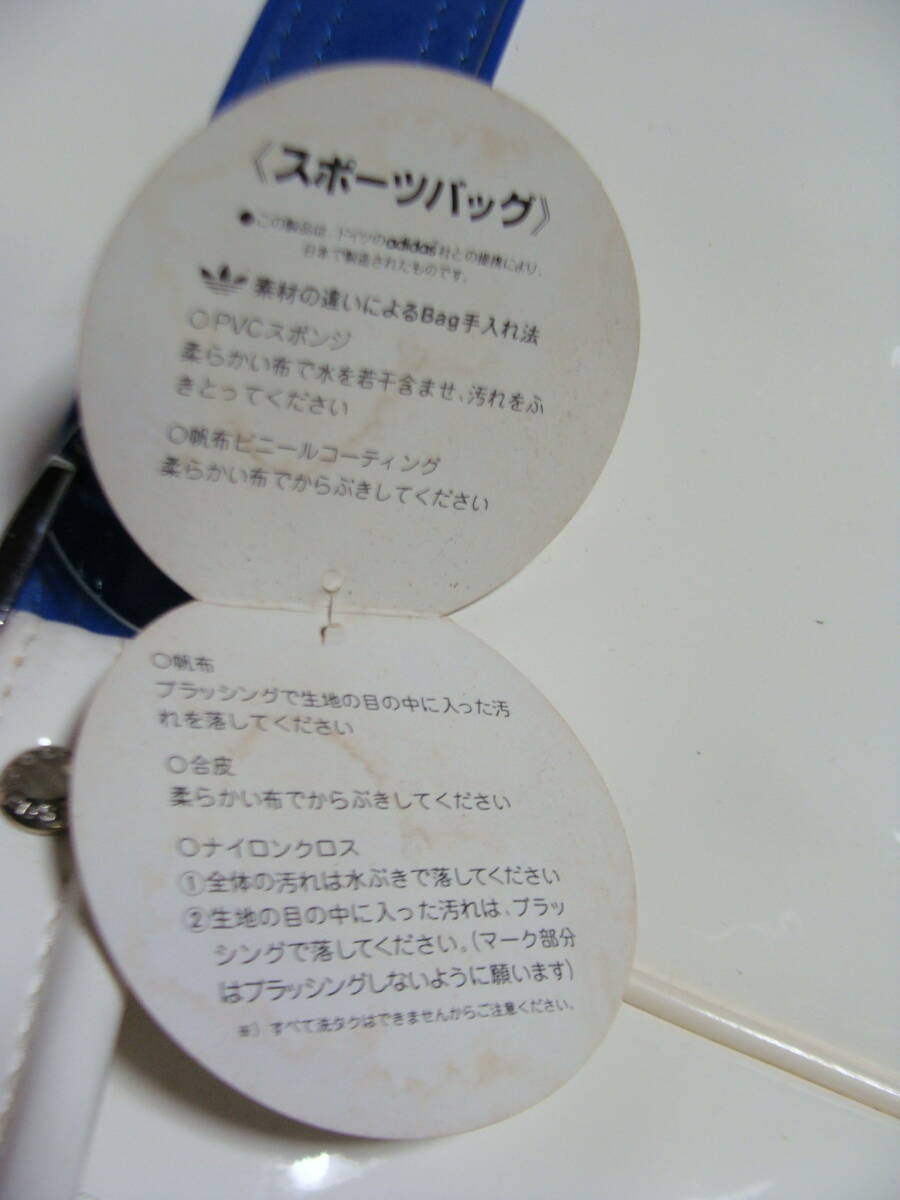 《スポーツバッグ》
●この製品は、ドイツのadidas社との提携により、
日本で製造されたものです。
素材の違いによるBag手入れ法
○PVCスポンジ
柔らかい布で水を若干含ませ、汚れをふ
きとってください
○帆布ビニールコーティング
柔らかい布でからぶきしてください
○帆布
ブラッシングで生地の目の中に入った汚
れを落してください
○合皮
柔らかい布でからぶきしてください
○ナイロンクロス
①全体の汚れは水ぶきで落してください
②生地の目の中に入った汚れは、ブラッ
シングで落してください。(マーク部分
はブラッシングしないように願います)
※)すべて洗タクはできませんからご注意ください。